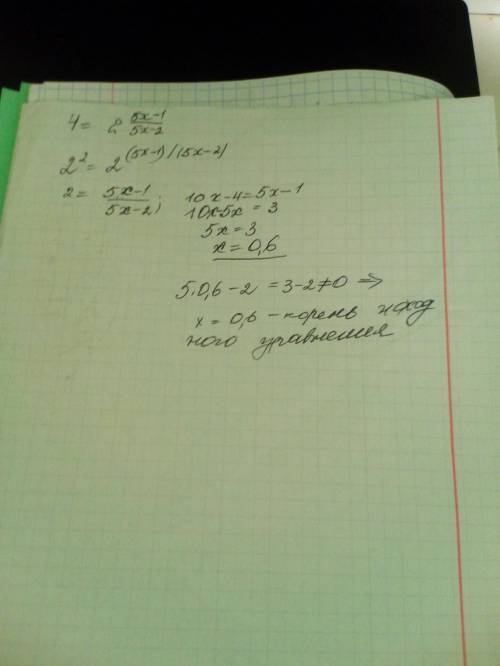 4 = 2^{\frac{5x-1}{5x-2}}
2² = 2^{(5x-1)/(5x-2)}
2 = \frac{5x-1}{5x-2}; 10x-4=5x-1
10x-5x = 3
5x = 3
x = 0,6
5·0,6-2 = 3-2≠0 ⇒
x = 0,6 - корень исход
ного уравнения